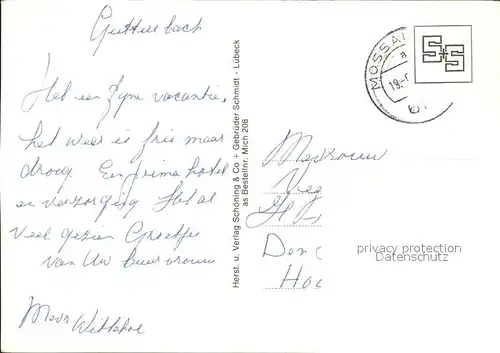 Guttersbach
Het een fyne vacantie,
het weer is fris maar
droog. Een prima hotel
en verzorging Hebal
veel gezien Groetjes
van Uw buurvrouw
Mevr Wittehol
Herst. u. Verlag Schöning & Co + Gebrüder Schmidt - Lübeck
as Bestellnr. Mich 208
MOSSAU
a
19.-
61
S+S
Mevrouw
Den
privacy protection
Datenschutz